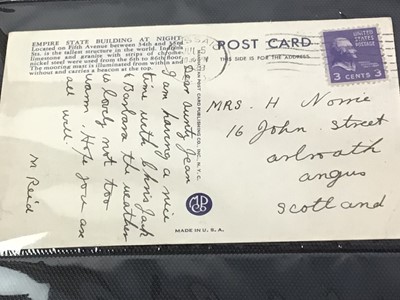 EMPIRE STATE BUILDING AT NIGHT
Located on Fifth Avenue between 34th and 33rd
Sts. is the tallest structure in the world. Indiana
limestone and granite with strips of chrome-
nickel steel were used from the 6th to 85th floor.
The mooring mast is illuminated from within and
without and carries a beacon at the top.
POST CARD
THIS SIDE IS FOR THE ADDRESS
3 CENTS 3
Dear Aunty Jean
I am having a nice
time with Chris Jack
& Barbara the weather
is lovely not too
warm. Hope you are
all well.
M Reid
POST CARD PUBLISHING CO., INC., N.Y.C.
MADE IN U.S.A.
MRS. H Norrie
16 John Street
arbroath
angus
Scotland